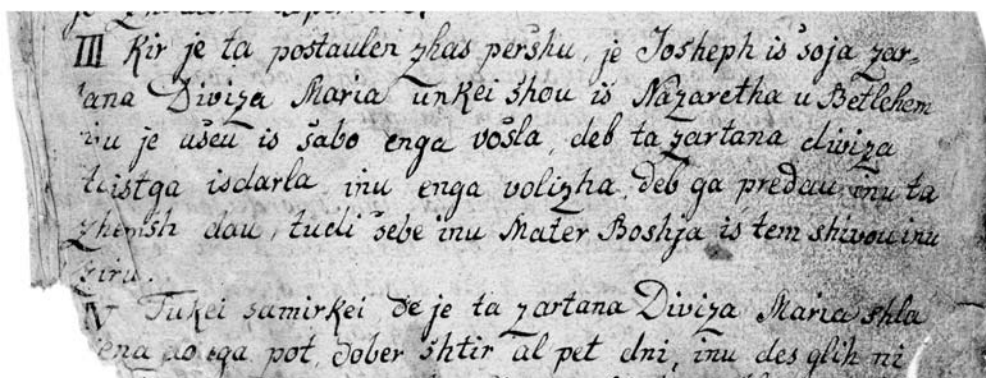 III Kir je ta postaulen zhas pershu, je Josheph is soja zar=
tana Diviza Maria unkei shou is Nazaretha u Betlehem
inu je useu is sabo enga vosla, deb ta zartana diviza
tistga isdarla inu enga volizha, deb ga predau inu ta
zhensh dau, tudi sebe inu Mater Boshja is tem shivou inu
ziru.
IV Tukei samirkei de je ta zartana Diviza Maria shla
ena pot, dober shtir al pet dni, inu des glih ni